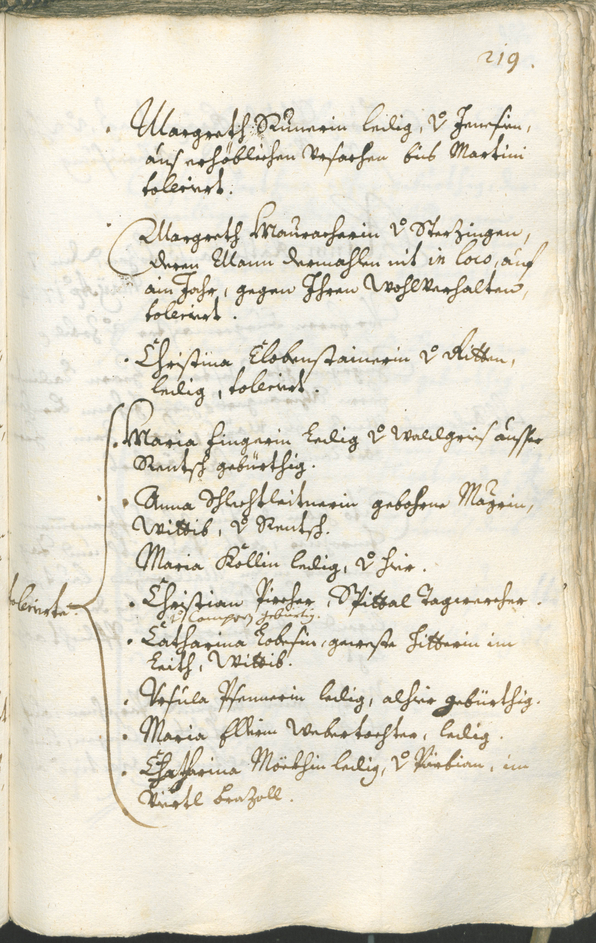 219.
Margreth Runerin ledig, v Jenesien,
aus erhöblichen Ursachen bis Martini
toleriert.
Margreth Mauracherin v Sterzingen,
deren Mann dermahlen nit in loco, auf
ain Jahr, gegen Ihren Wohlverhalten,
toleriert.
Christina Clobenstainerin v Ritten,
ledig, toleriert.
Maria Fingerin ledig v Waldgries ausser
Rentsch gebürthig.
Anna Schlechtleitnerin gebohrne Mayrin,
Wittib, v Rentsch.
Maria Köllin ledig, v hier.
tolerierte.
Christian Pircher, Spittal Tagwercher.
gebürtig.
Catharina geweste Hitterin im
Leith, Wittib.
Ursula Pfennerin ledig, alhier gebürthig.
Maria Ellerin Webertochter, ledig.
Chatharina ledig, v im
Viertl